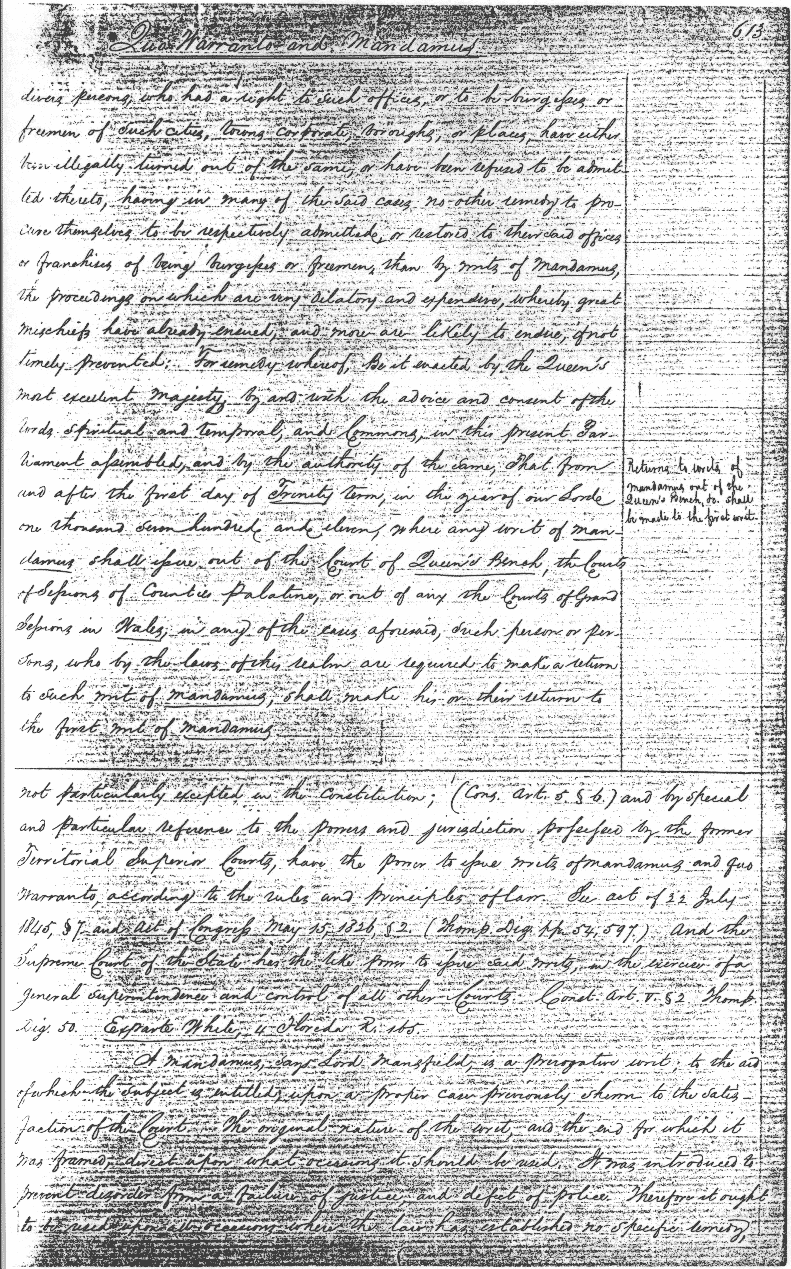 613
Quo Warranto and Mandamus
divers persons, who had a right to such offices, or to be burgesses or
freemen of such cities, towns corporate, boroughs, or places, have either
been illegally turned out of the same, or have been refused to be admit
ted thereto, having in many of the said cases no other remedy to pro-
cure themselves to be respectively admitted, or restored to their said offices
or franchises of being burgesses or freemen, than by writs of Mandamus,
the proceedings on which are very dilatory and expensive, whereby great
mischiefs have already ensued, and more are likely to ensue, if not
timely prevented: For remedy whereof, Be it enacted by the Queen's
most excellent majesty, by and with the advice and consent of the
lords spiritual and temporal, and Commons, in this present Par-
liament assembled, and by the authority of the same, That from
and after the first day of Trinity term, in the year of our Lord
one thousand seven hundred and eleven, where any writ of man-
damus shall issue out of the Court of Queen's Bench, the Courts
of Sessions of Counties Palatine, or out of any the Courts of Grand
Sessions in Wales, in any of the cases aforesaid, such person or per-
sons, who by the laws of this realm are required to make a return
to such writ of mandamus, shall make his or their return to
the first writ of mandamus
Returns to writs of
mandamus out of the
Queen's Bench, &c. shall
be made to the first writ.
not particularly excepted in the Constitution; (Cons. Art. 5. § 6.) and by special
and particular reference to the powers and jurisdiction possessed by the former
Territorial Superior Courts, have the power to issue writs of mandamus and quo
Warranto, according to the rules and principles of law. See act of 22 July
1845, § 7. and Act of Congress May 15, 1826, § 2. (Thomp. Dig. pp. 54, 597.) And the
Supreme Court of the State has the like power to issue said writs, in the exercise of a
general superintendence and control of all other Courts. Const. Art. V. § 2 Thomp.
Dig. 50. Exparte White, 4 Florida R. 165.
A mandamus, says Lord Mansfield, is a prerogative writ; to the aid
of which the subject is entitled, upon a proper case previously shewn to the satis-
faction of the Court. The original nature of the writ, and the end for which it
was framed, direct upon what occasions it should be used. It was introduced to
prevent disorder from a failure of justice and defect of police. Therefore it ought
to be used upon all occasions where the law has established no specific remedy,